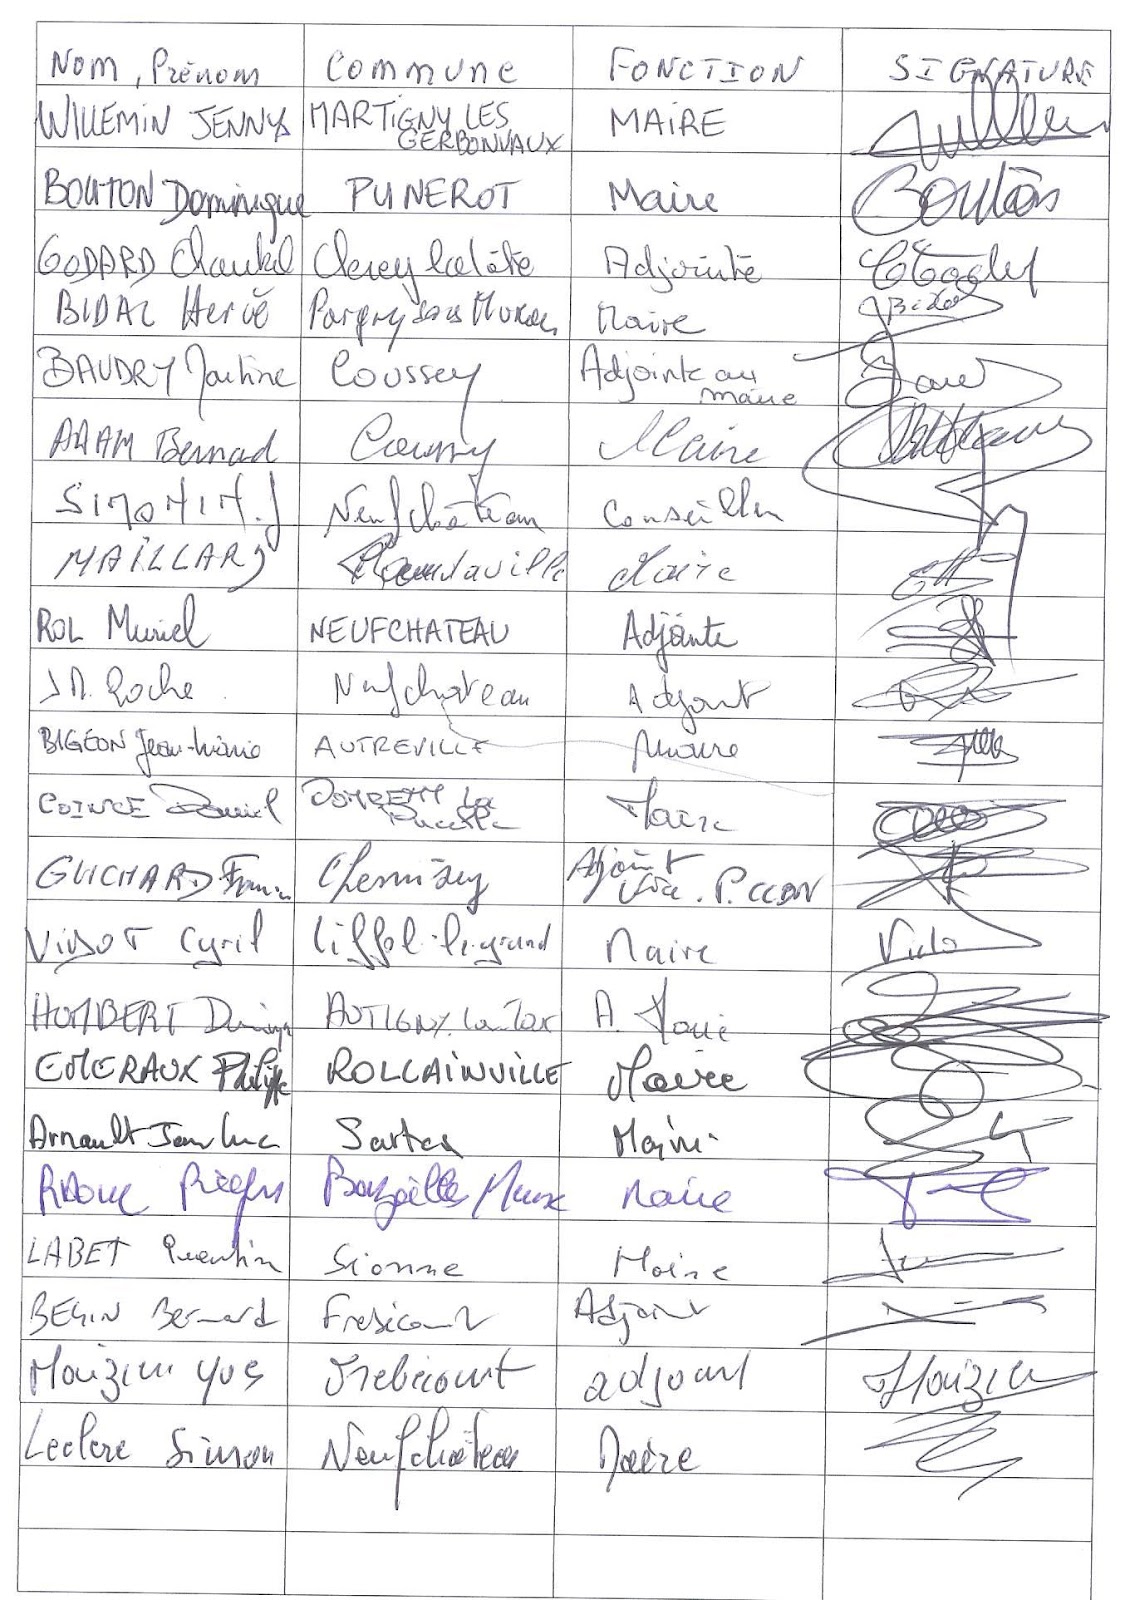 Nom, Prénom Commune FONCTION SIGNATURE
WILLEMIN JENNY MARTIGNY LES GERBONVAUX MAIRE
BOUTON Dominique PUNEROT Maire Bouton
GODARD Chantal Clerey la côte Adjointe
BIDAL Hervé Pargny sous Mureau Maire
BAUDRY Martine Coussey Adjointe au maire
ADAM Bernard Maire
SIMONIN.J Neufchâteau Conseiller
MAILLARD Maire
ROL Muriel NEUFCHATEAU Adjointe
J M. Roche Neufchateau Adjoint
BIGEON Jean-Marie AUTREVILLE Maire
COINCE Daniel DOMREMY La Pucelle Maire
GUICHARD Chermisey Adjoint Vice. P. CCBN
VIDOT Cyril Liffol-le-grand Maire
HUMBERT AUTIGNY. La Tour A. Maire
EMERAUX Philippe ROLLAINVILLE Maire
Arnault Jean Luc Sartes Maire
RAOUL Maire
LABET Quentin Sionne Maire
BEGIN Bernard Frebécourt Adjoint
Yves Frebécourt adjoint
Leclerc Simon Neufchâteau Maire